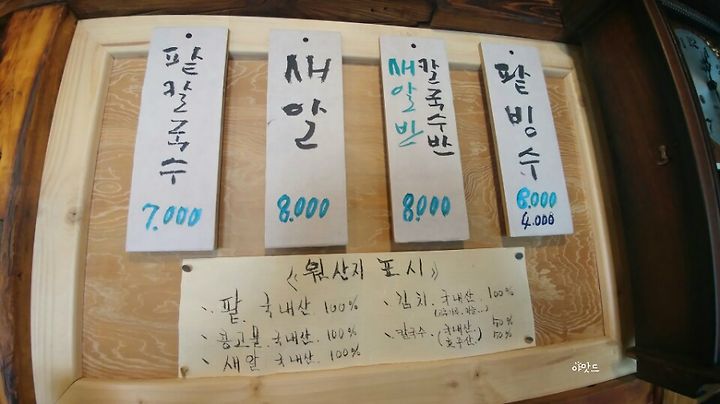 팥칼국수
7.000
새알
8.000
새알반
칼국수반
8.000
팥빙수
6.000
4.000
《원산지 표시》
팥. 국내산. 100%
콩고물. 국내산. 100%
새알 국내산. 100%
김치. 국내산. 100%
칼국수. (국내산. 50%
50%
야맛드